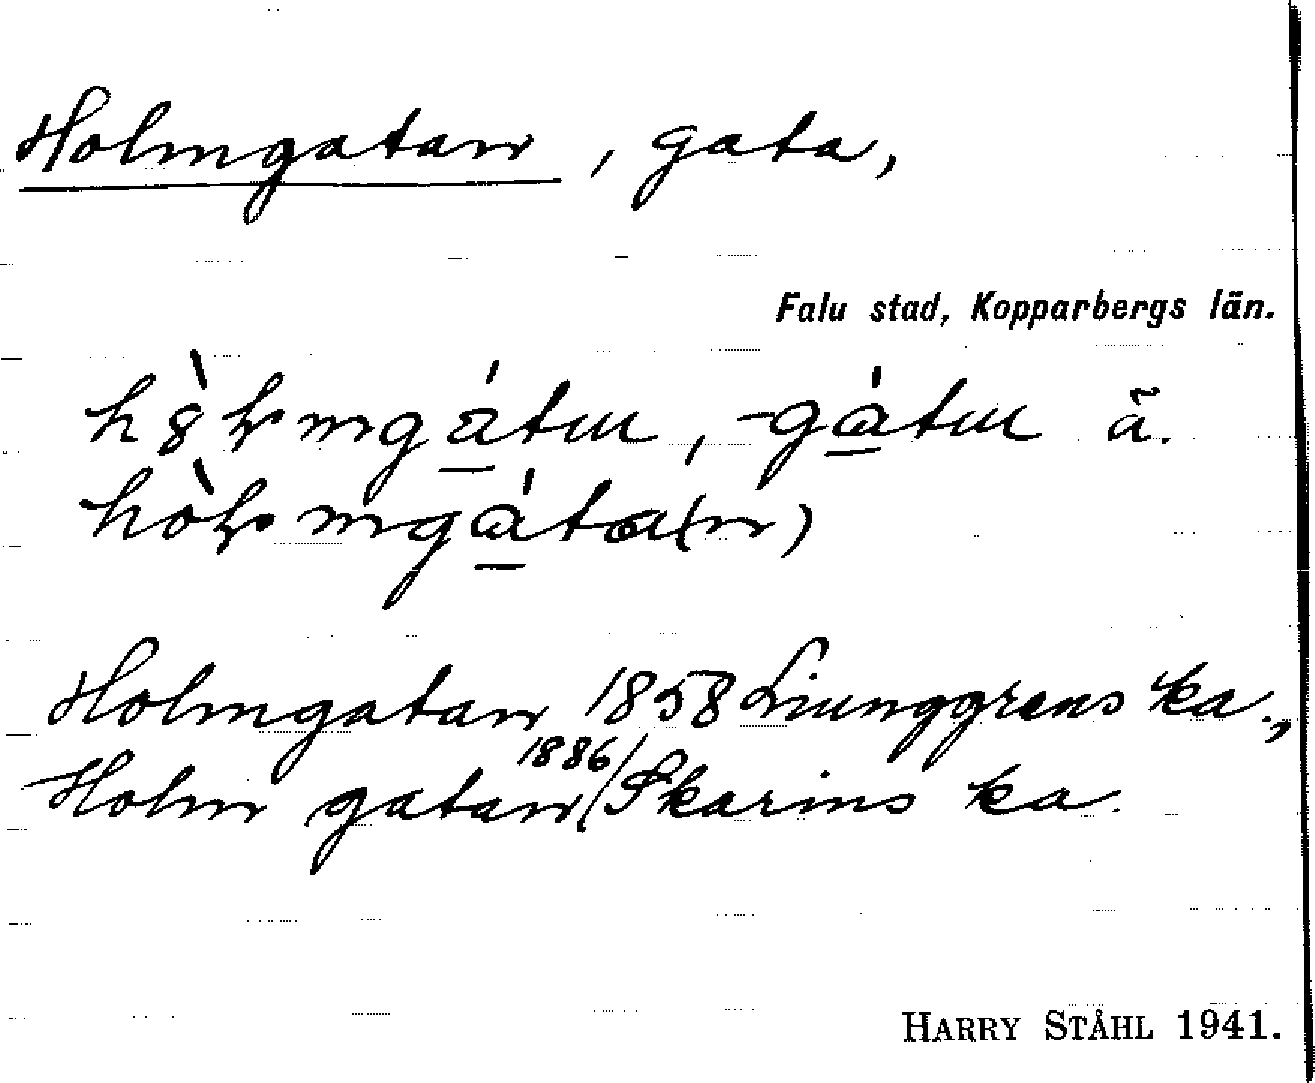 Holmgatan, gata,
Falu stad, Kopparbergs län.
-gátın ã.
Holmgatan 1858 Liunggrens ka.,
Holm gatan 1886/Skarins ka.
HARRY STÅHL 1941.